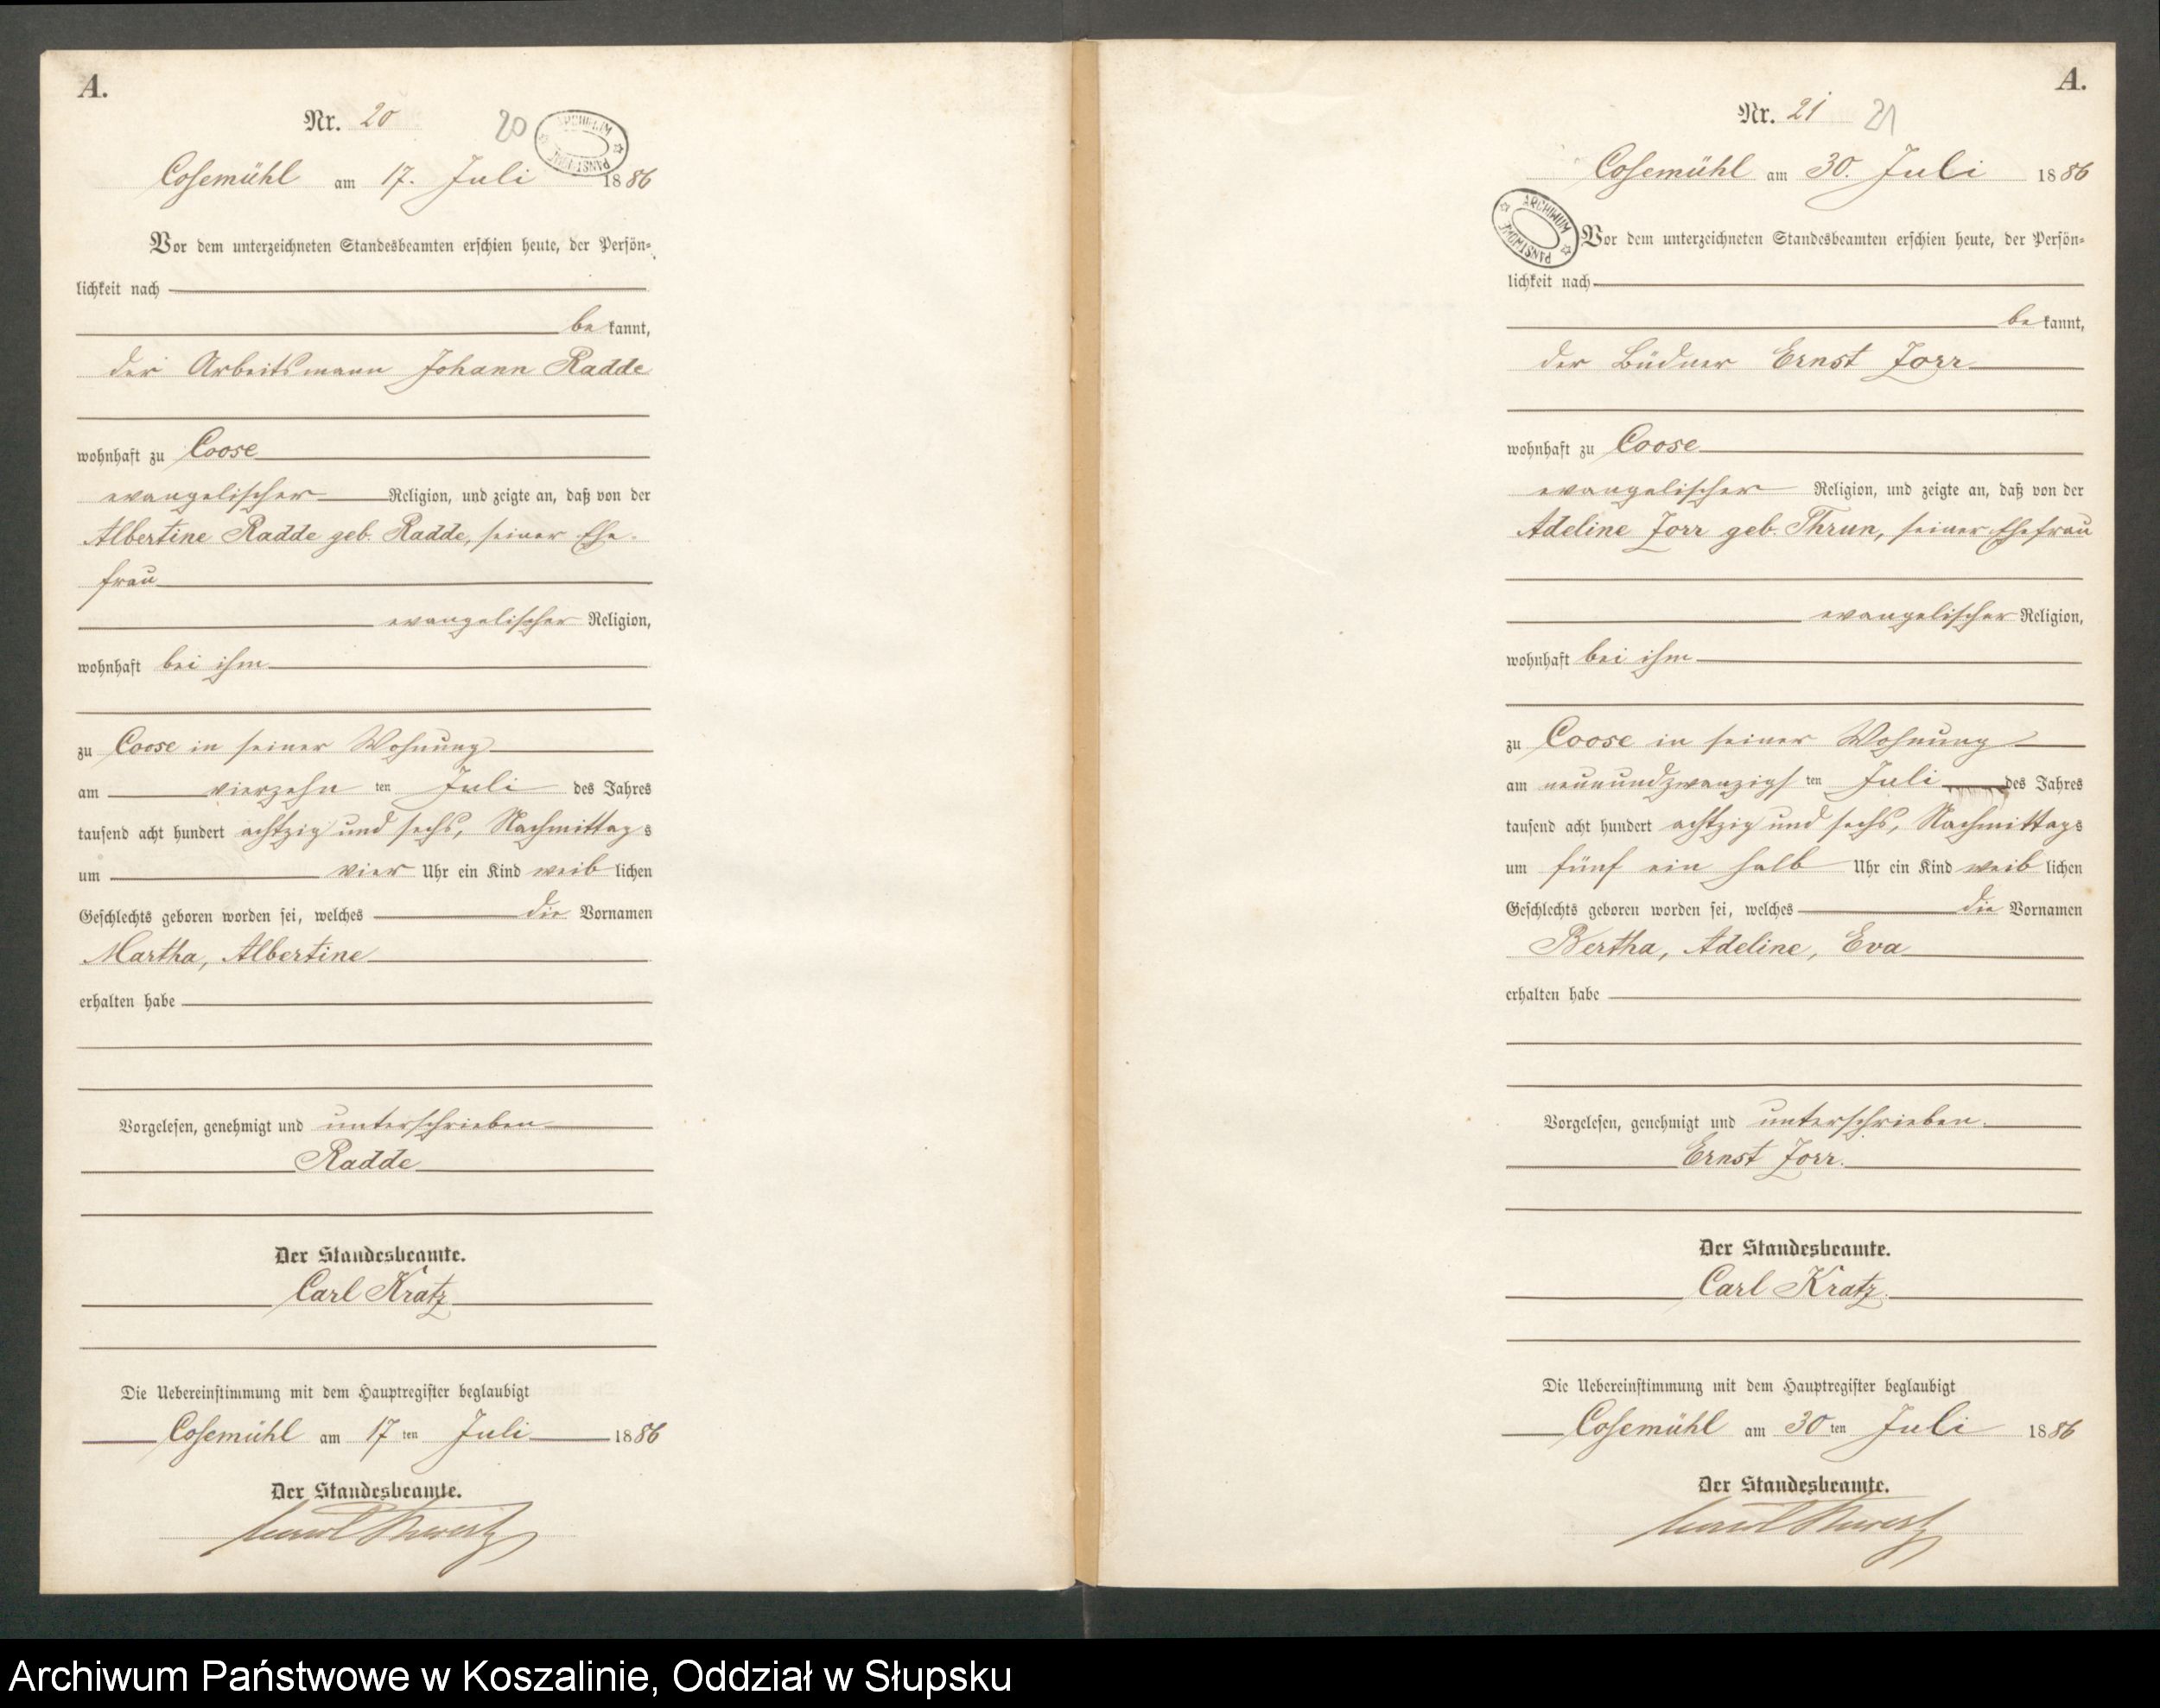 A.
Nr. 20
20
ARCHIWUM PAŃSTWOWE
Cosemühl am 17. Juli 1886
Vor dem unterzeichneten Standesbeamten erschien heute, der Persön-
lichkeit nach
bekannt,
der Arbeitsmann Johann Radde
wohnhaft zu Coose
evangelischer Religion, und zeigte an, daß von der
Albertine Radde geb. Radde, seiner Ehe-
frau
evangelischer Religion,
wohnhaft bei ihm
zu Coose in seiner Wohnung
am vierzehn ten Juli des Jahres
tausend acht hundert achtzig und sechs, Nachmittags
um vier Uhr ein Kind weiblichen
Geschlechts geboren worden sei, welches die Vornamen
Martha, Albertine
erhalten habe
Vorgelesen, genehmigt und unterschrieben
Radde
Der Standesbeamte.
Carl Kratz
Die Uebereinstimmung mit dem Hauptregister beglaubigt
Cosemühl am 17 ten Juli 1886
Der Standesbeamte.
Carl Kratz
A.
Nr. 21
21
ARCHIWUM PAŃSTWOWE
Cosemühl am 30. Juli 1886
Vor dem unterzeichneten Standesbeamten erschien heute, der Persön-
lichkeit nach
bekannt,
der Büdner Ernst Jorr
wohnhaft zu Coose
evangelischer Religion, und zeigte an, daß von der
Adeline Jorr geb. Thrun, seiner Ehefrau
evangelischer Religion,
wohnhaft bei ihm
zu Coose in seiner Wohnung
am neunundzwanzigs ten Juli des Jahres
tausend acht hundert achtzig und sechs, Nachmittags
um fünf ein halb Uhr ein Kind weiblichen
Geschlechts geboren worden sei, welches die Vornamen
Bertha, Adeline, Eva
erhalten habe
Vorgelesen, genehmigt und unterschrieben.
Ernst Jorr.
Der Standesbeamte.
Carl Kratz.
Die Uebereinstimmung mit dem Hauptregister beglaubigt
Cosemühl am 30 ten Juli 1886
Der Standesbeamte.
Carl Kratz
Archiwum Państwowe w Koszalinie, Oddział w Słupsku